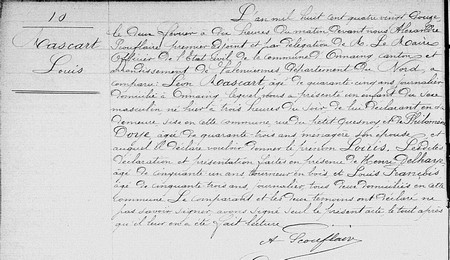 10
Mascart
Louis
L'an mil huit cent quatre vingt douze
le deux février à dix heures du matin devant nous Alexandre
premier adjoint et par délégation de M. Le Maire
Officier de l'Etat civil de la commune d'Onnaing canton et
arrondissement de Valenciennes, Département du Nord, a
comparu Léon Mascart âgé de quarante cinq ans journalier
domicilié à Onnaing lequel nous a présenté un enfant du sexe
masculin né hier à trois heures du soir de lui déclarant en sa
demeure sise en cette commune rue du petit Quesnoy et de Philomène
Dove, âgée de quarante trois ans ménagère son épouse et
auquel il déclare vouloir donner le prénom Louis. Lesdites
déclaration et présentation faites en présence de Henri
âgé de cinquante un ans tourneur en bois et Louis François
âgé de cinquante trois ans, journalier, tous deux domiciliés en cette
commune. Le comparant et les deux témoins ont déclaré ne
pas savoir signer, avons signé seul le présent acte le tout après
qu'il leur en a été fait lecture